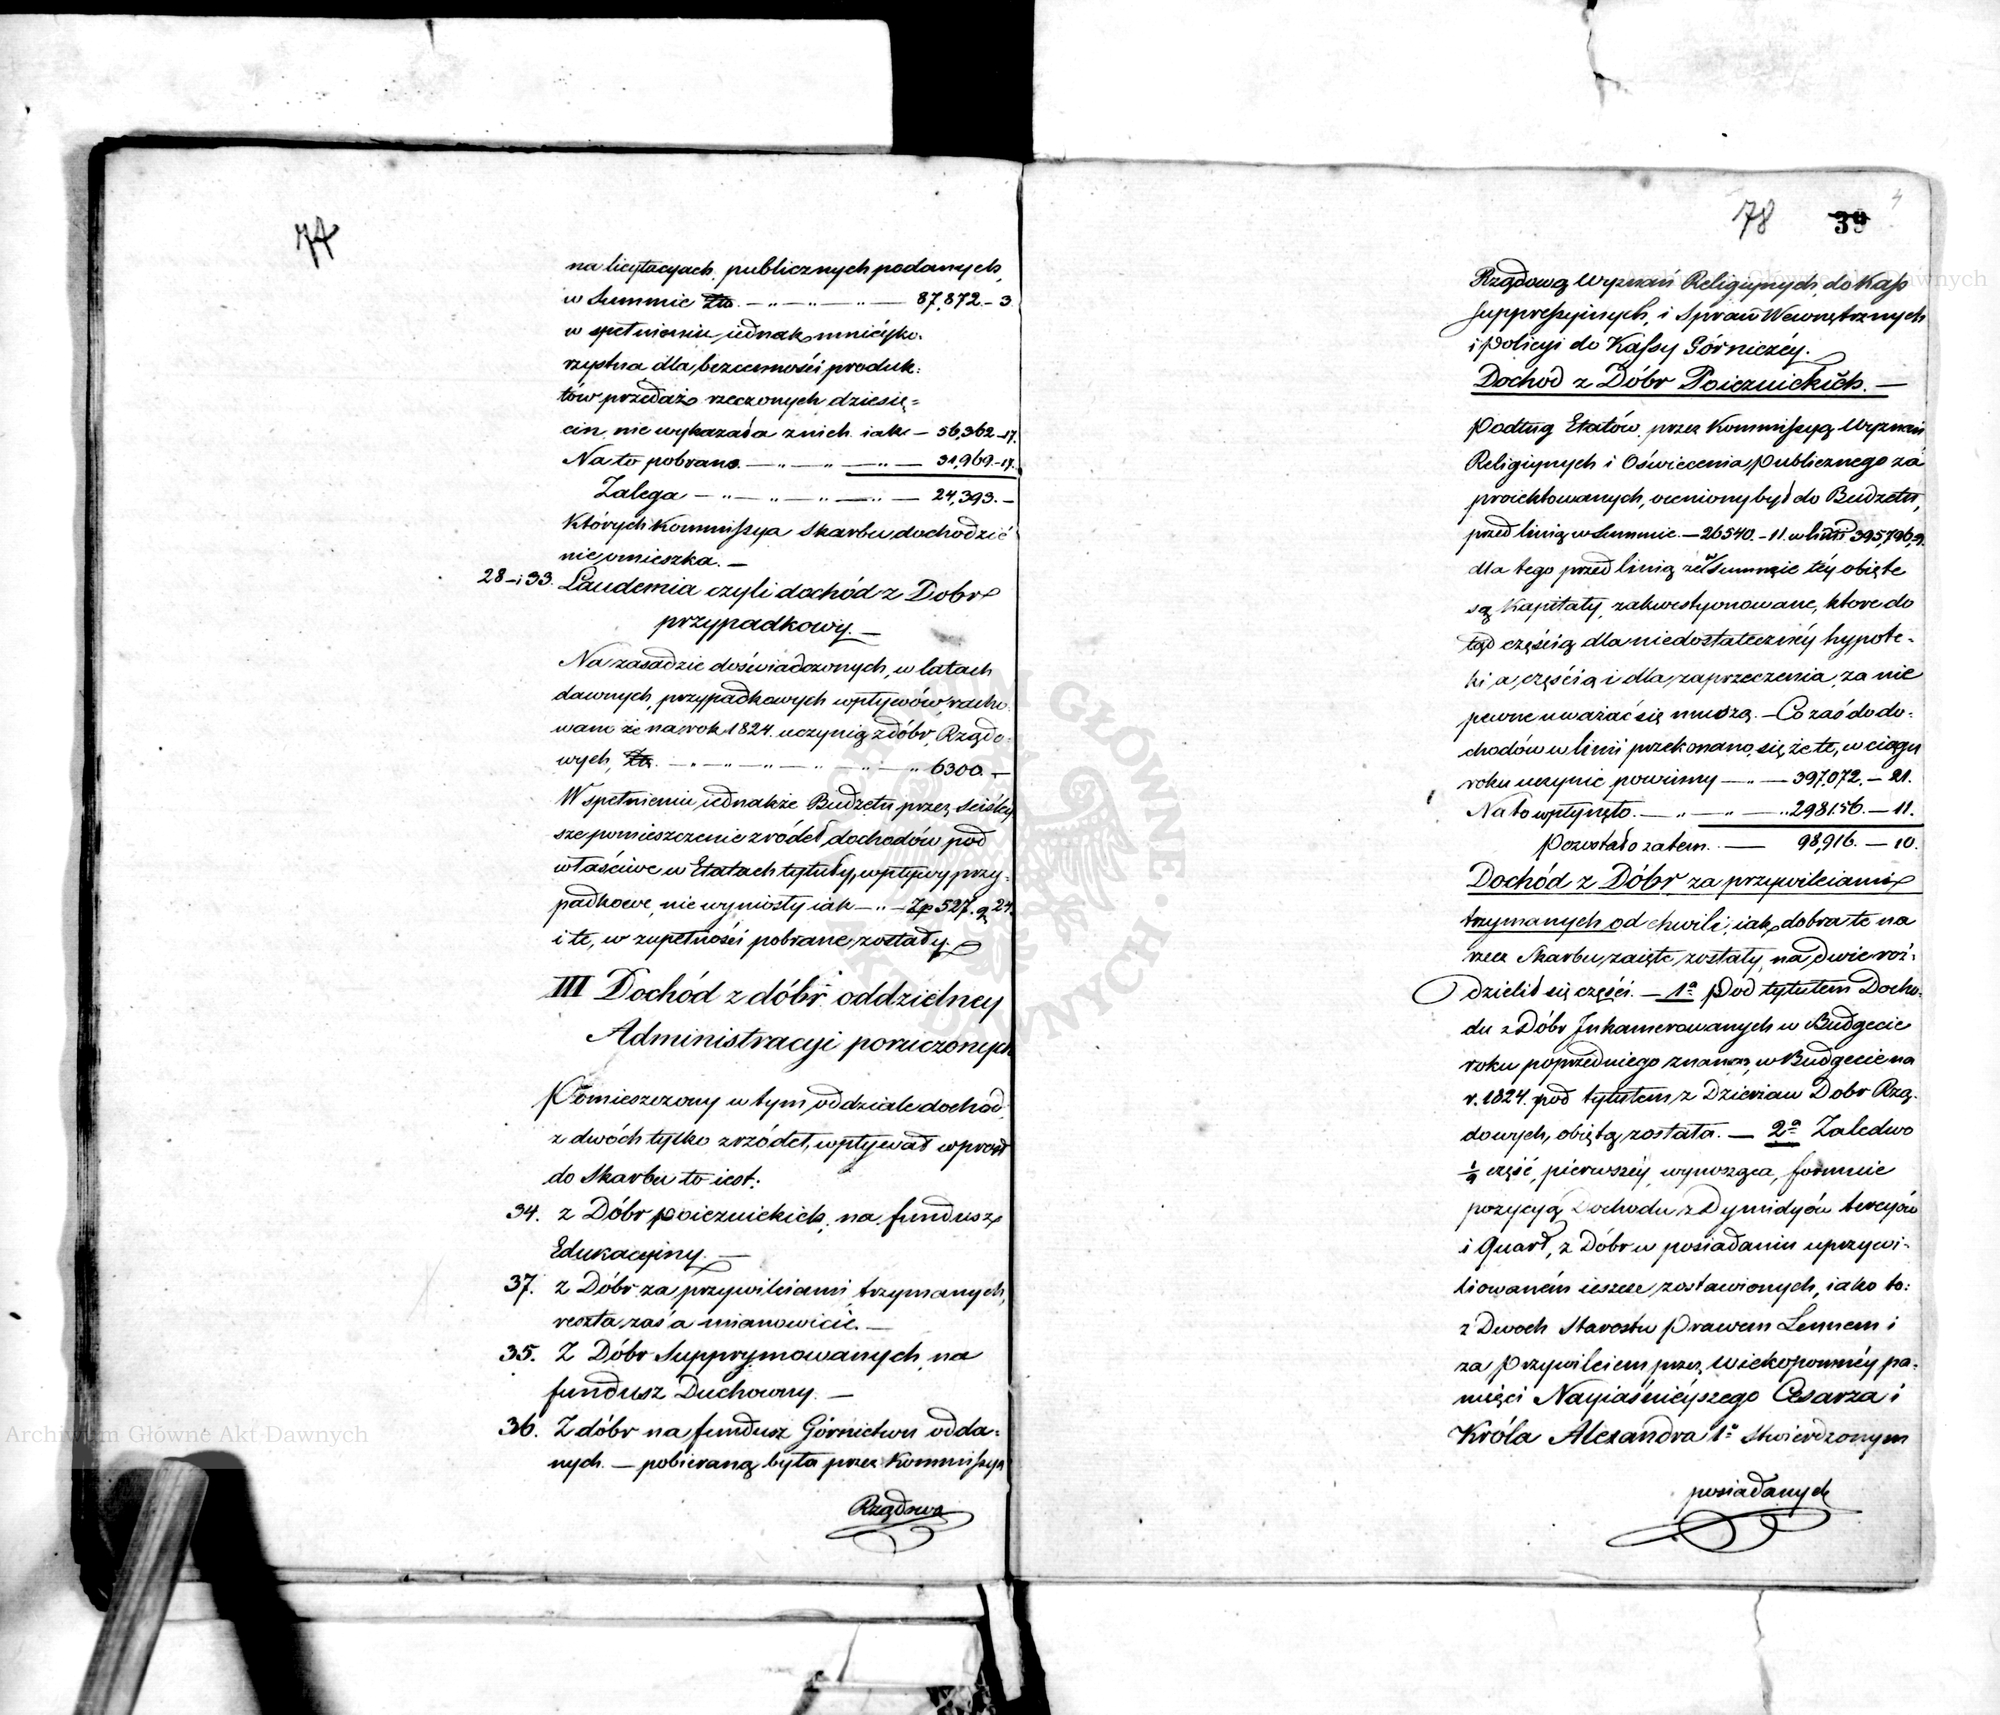 74
na licytacyach publicznych podanych,
w Summie Złt. — „ — „ — „ — 87,872 – 3
w spełnieniu jednak mniéj ko-
rzystna dla bezcenności produk-
tów przedaż rzeczonych dziesię=
cin nie wykazała z nich iak — 56,362 – 17.
Na to pobrano — „ — „ — „ — 31,969. – 17.
Zalega — „ — „ — „ — „ — 24,393. –
których Kommissya Skarbu dochodzić
nie omieszka. —
28 – i 33. Laudemia czyli dochód z Dobr
przypadkowy. —
Na zasadzie doświadczonych, w latach
dawnych, przypadkowych wpływów, racho-
wano że na rok 1824. uczynią z dóbr Rządo-
wych, Złt. — „ — „ — „ — „ — „ 6300. —
W spełnieniu jednakże Budżetu przez ściśléy
sze pomieszczenie zródeł dochodów pod
właściwe w Etatach tytuły, wpływy przy-
padkowe, nie wyniosły iak — „ — Zp 527. g 24.
i te, w zupełności pobrane zostały.
III Dochód z dóbr oddzielney
Administracyi poruczonych
Pomieszczony w tym oddziale dochód,
z dwóch tylko zrzódeł, wpływał wprost
do Skarbu to iest:
34. z Dóbr poiezuickich, na fundusz
Edukacyiny. —
37. z Dóbr za przywileiami trzymanych,
reszta zaś a mianowicie. —
35. Z Dóbr Supprymowanych na
fundusz Duchowny. —
36. Z dóbr na fundusz Górnictwu odda-
nych. — pobieraną była przez Kommissyą
Rządową
78 39
Rządową Wyznań Religiynych, do Kass
suppressyinych, i Spraw Wewnętrznych
i Policyi do Kassy Górniczéy.
Dochód z Dóbr Poiezuickich. —
Podług Etatów przez Kommissyą Wyznań
Religiynych i Oświecenia Publicznego za
proiektowanych, oceniony był do Budżetu,
przed linią w Summie. — 26540. – 11. w linii 395,796, 9.
dla tego przed linią że w Summie téy obięte
są Kapitały, zakwestyonowane, ktore do
tąd częścią dla niedostateczney hypote-
ki a częścią i dla zaprzeczenia, za nie
pewne uważać się muszą. — Co zaś do do-
chodów w linii przekonano się że te, w ciągu
roku uczynić powinny — „ — 397,072. — 21.
Na to wpłynęło. — „ — „ — „ 298156. — 11.
Pozostało zatem. — 98,916. — 10.
Dochód z Dóbr za przywileiami
trzymanych od chwili, iak dobra te na
rzecz Skarbu zaięte zostały, na dwie roz-
dzielił się części. — 1ª Pod tytułem Docho-
du z Dóbr Inkamerowanych w Budgecie
roku poprzedniego znana, w Budgecie na
r. 1824. pod tytułem z Dzierżaw Dobr Rzą-
dowych, obiętą została. — 2ª Zaledwo
1/9 część, pierwszéy wynosząca, formuie
pozycyą Dochodu z Dymidyów tercyów
i Quart, z Dóbr w posiadaniu uprzywi-
liowaném ieszcze zostawionych, iako to:
z Dwoch Starostw Prawem Lennem i
za Przywileiem przez Wiekopomnéy pa-
mięci Nayiaśnieyszego Cesarza i
Króla Alexandra 1º Stwierdzonym
posiadanych